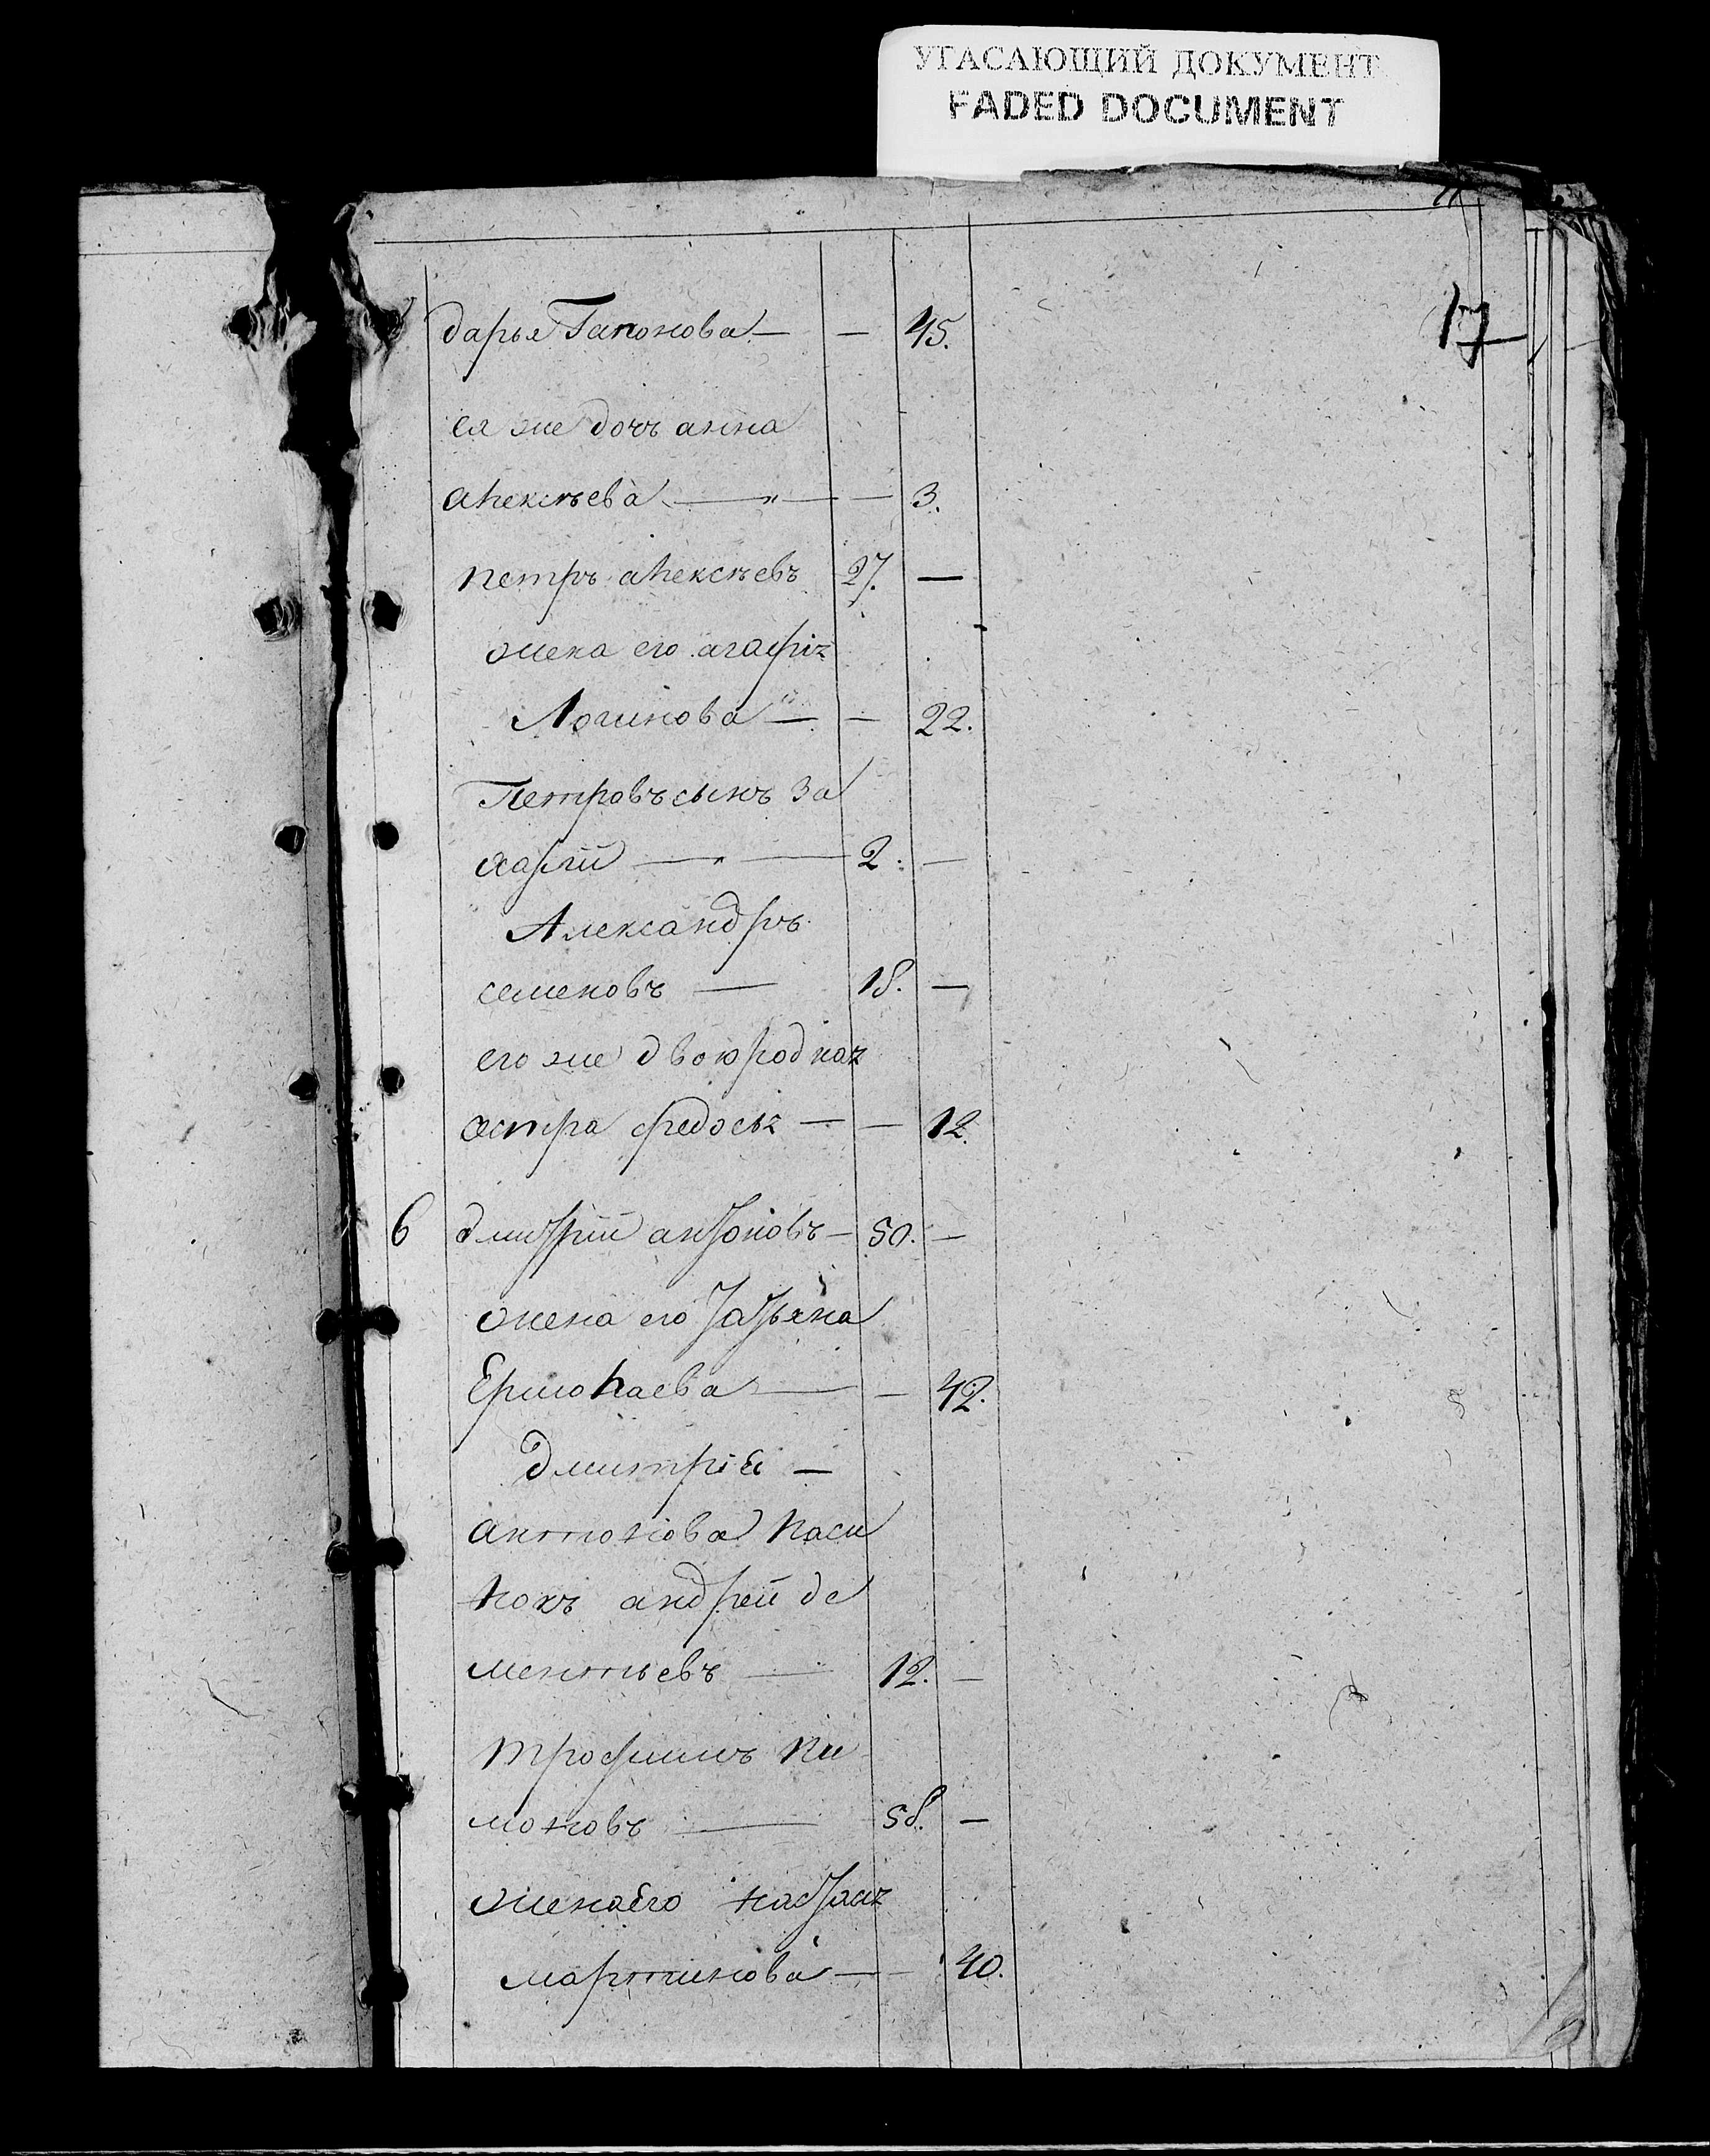 УГАСАЮЩИЙ ДОКУМЕНТ
FADED DOCUMENT
17
дарья Гапонова — — 45.
ея же дочь анна
алексѣева — — 3.
петръ алексѣевъ 27. —
жена его агафія
Логинова — — 22.
Петровъ сынъ За
харій — 2. —
Александръ
семеновъ — 18. —
его же двоюродная
сестра федосья — — 12.
6 дмитрій антоновъ — 50. —
жена его татьяна
Ермолаева — — 42.
Дмитрія —
антонова пасы
нокъ андрей де
ментьевъ — 12. —
трофимъ пи
моновъ — 58. —
жена его настасья
мартинова — — 40.